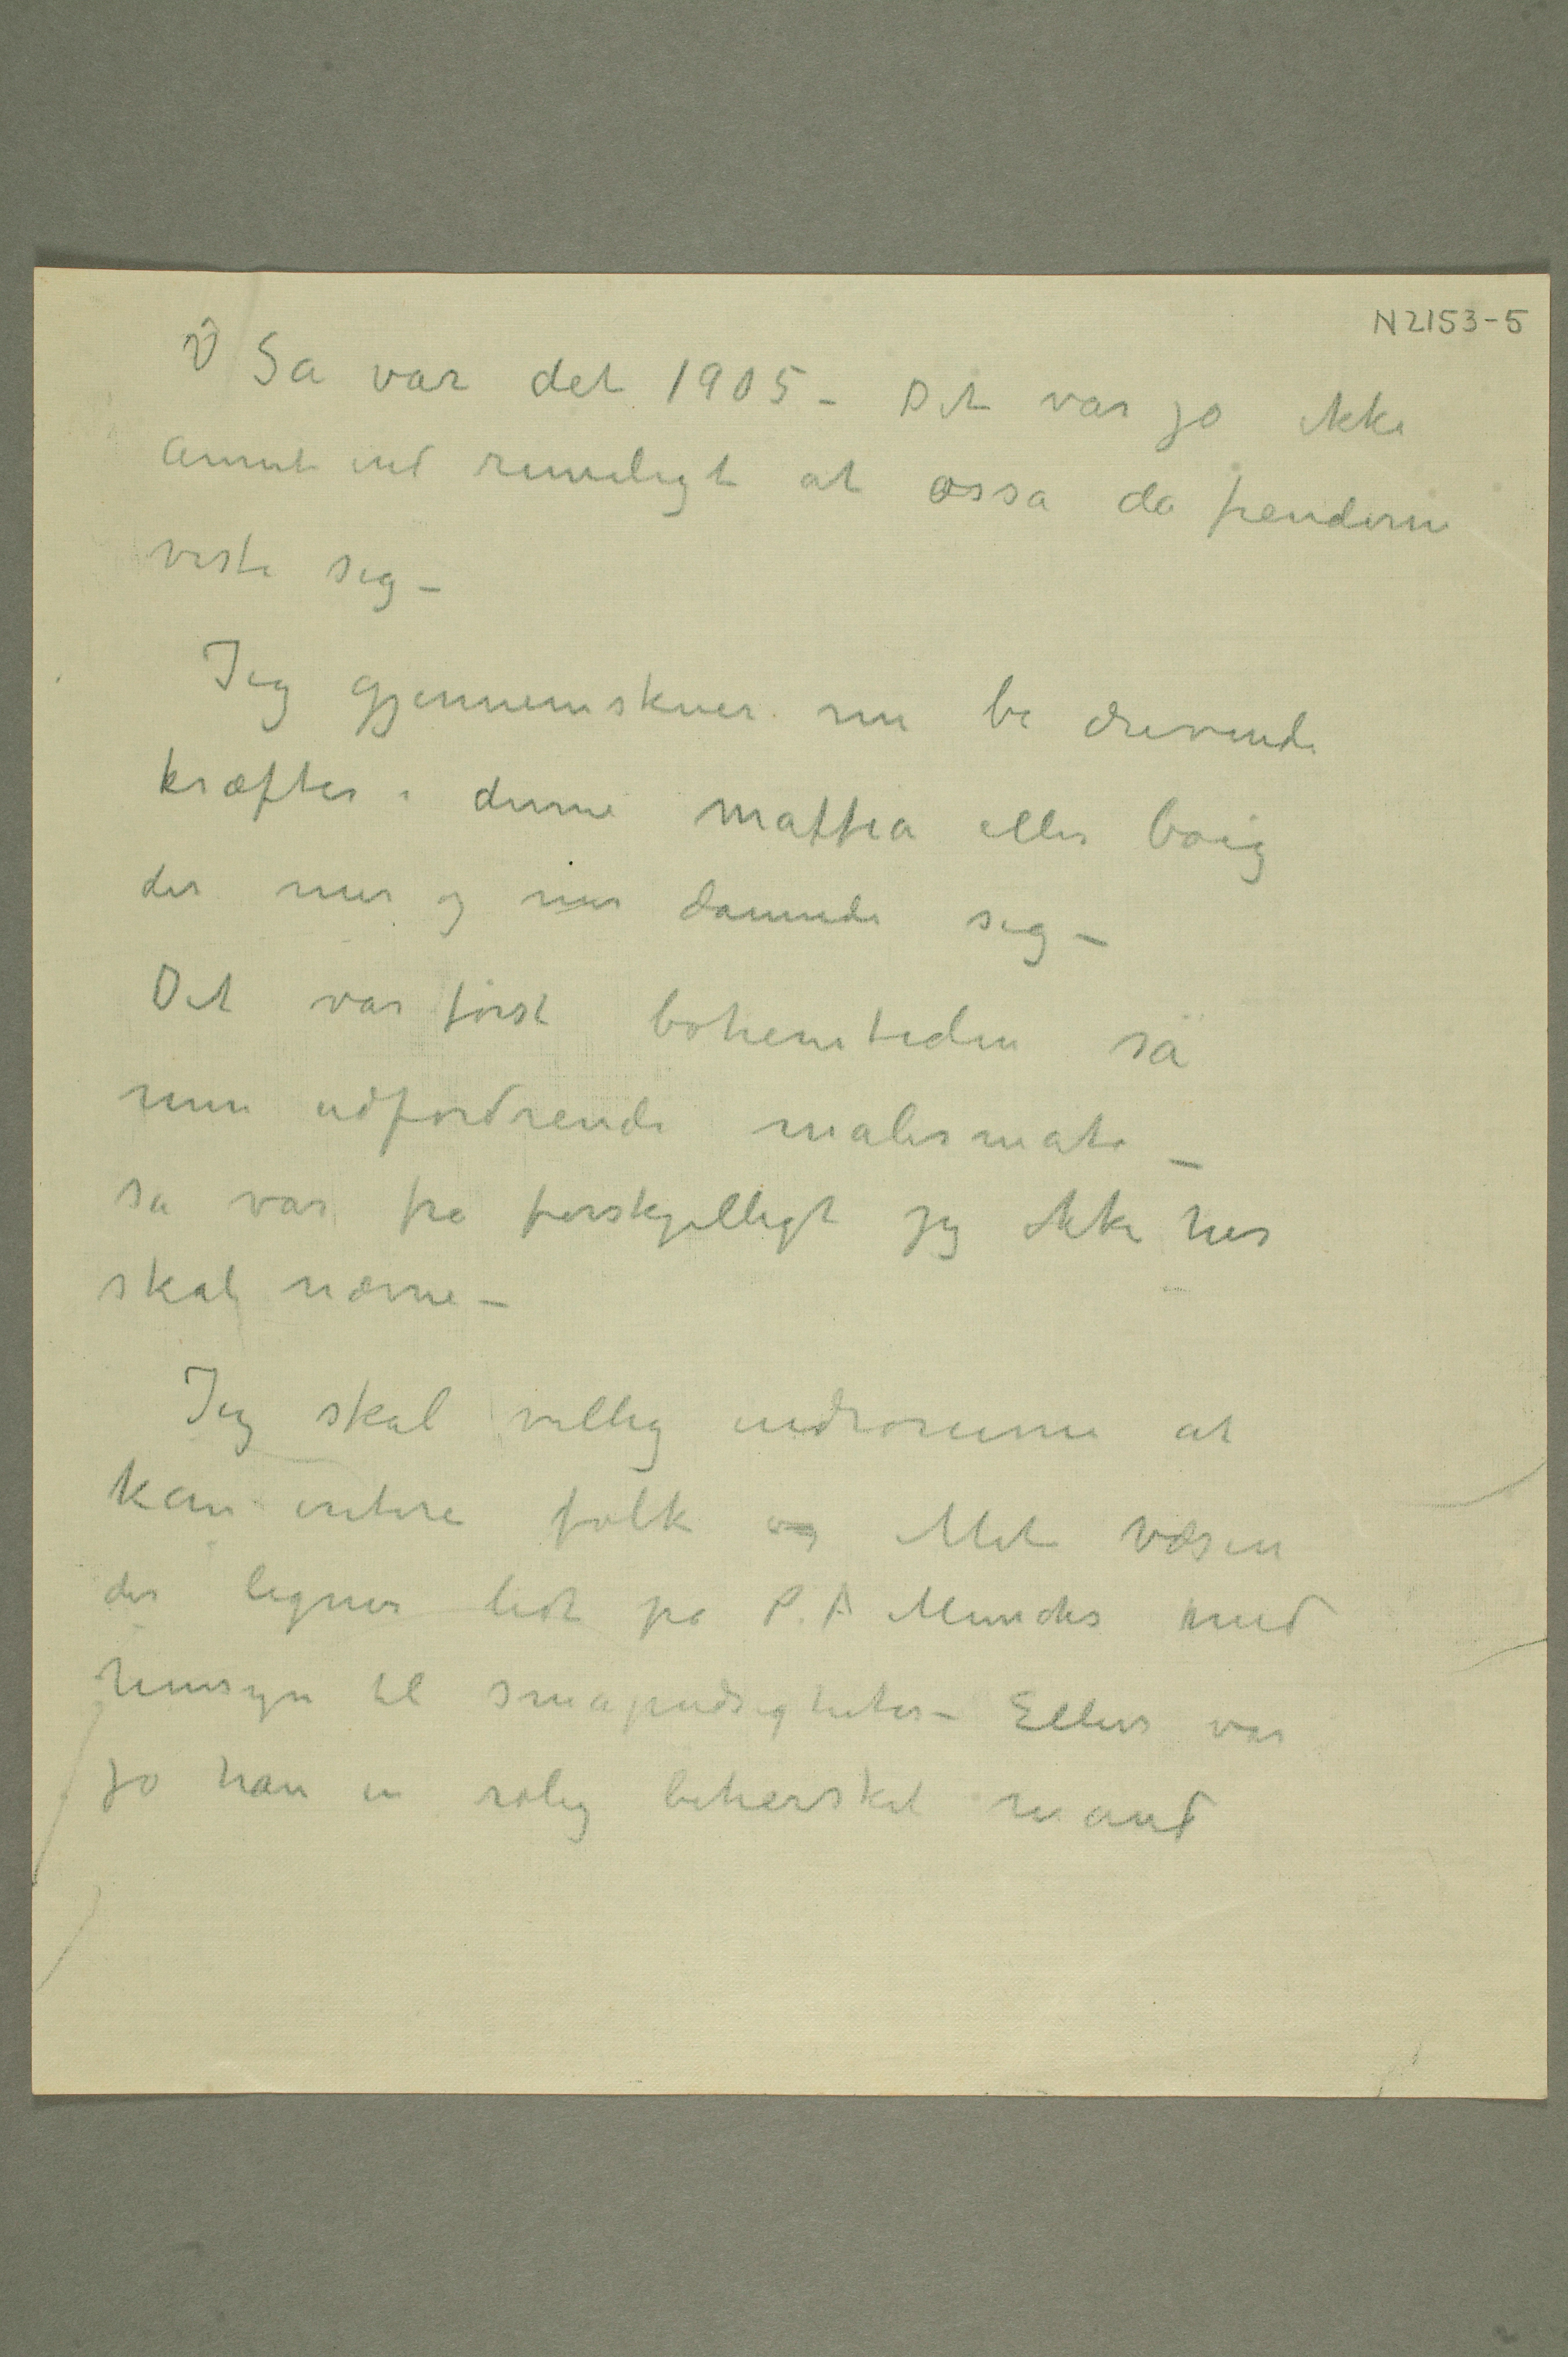 N 2153-5
V Sa var det 1905 – Det var jo ikke
annet end rimeligt at ossa da fienderne
viste sig –
Jeg gjennemskuer nu be drivende
kræfter i denne maffia eller boig
der mer og mer dannede sig –
Det var först bohemtiden så
min udfordrende malermate –
sa var fra forskjelligt jeg ikke her
skal nævne –
Jeg skal villig indrømme at
kan irritere folk og Mit væsen
der ligner lidt pa P. A Munchs med
hensyn til smapudsigheter – Ellers var
jo han en rolig behersket mand